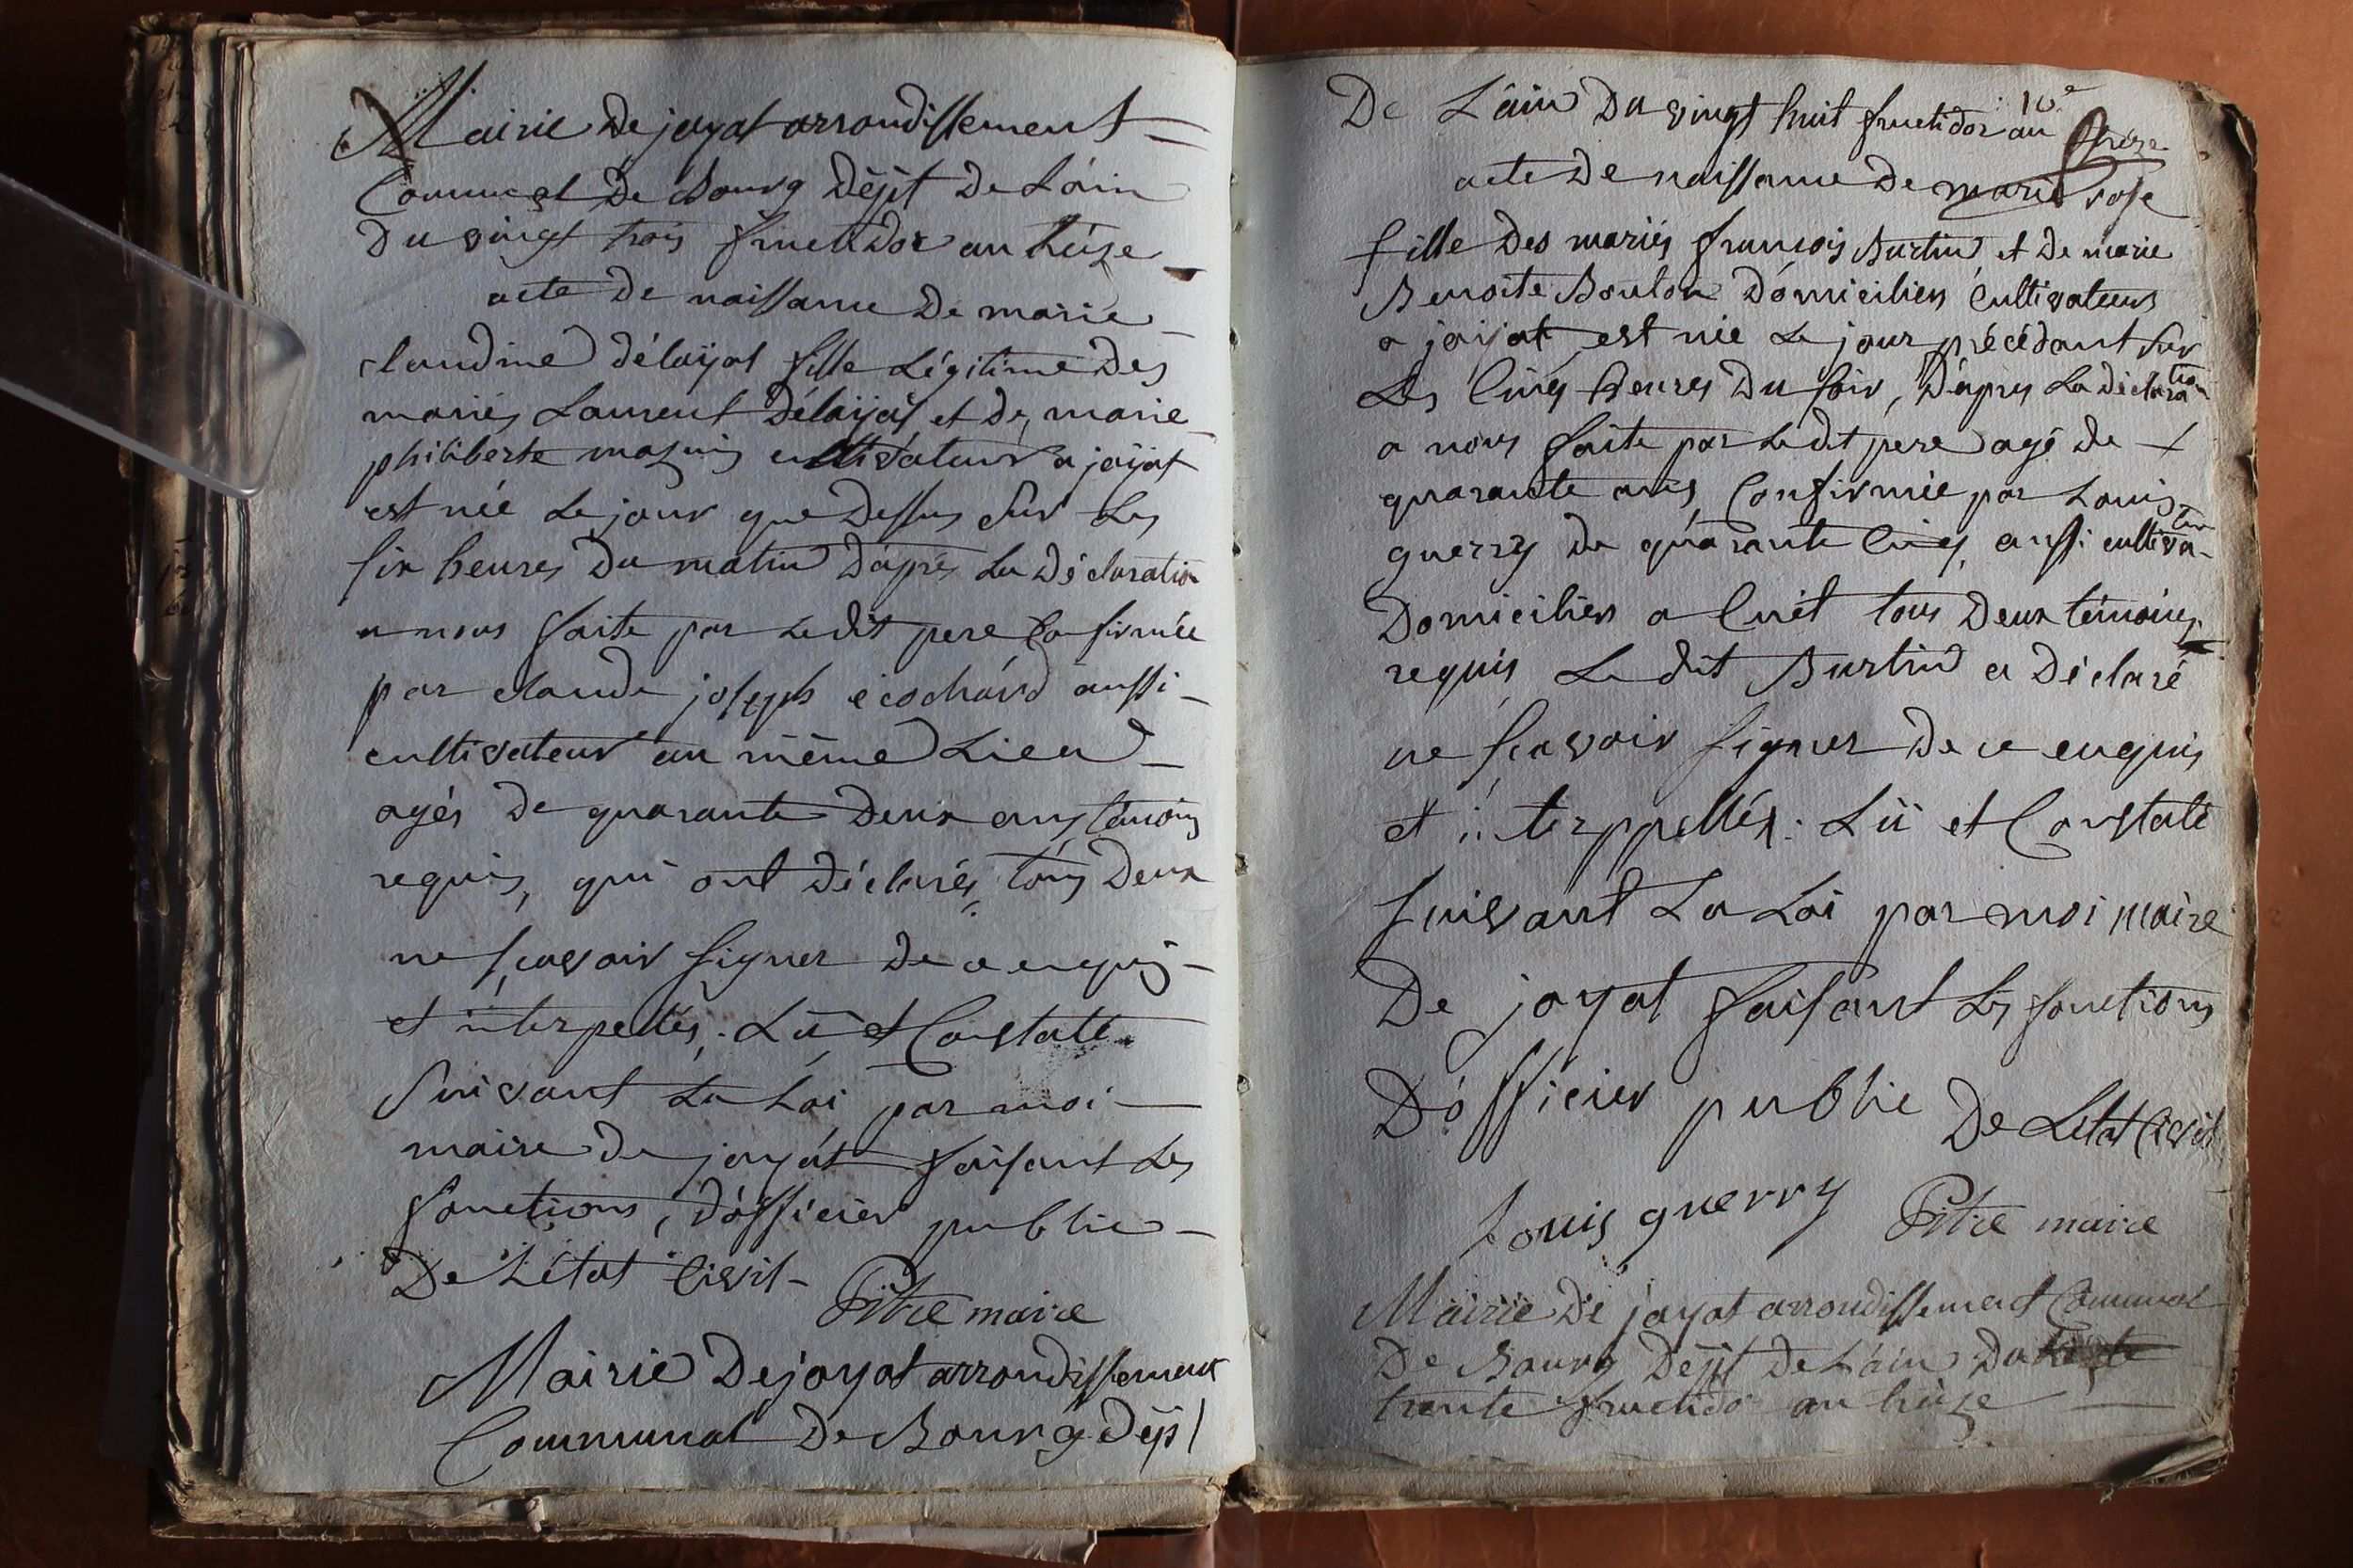 Mairie De jayat arrondissement
Communal De Bourg Dépt De L'ain
Du vingt trois fructidor an treize
acte De naissance De marie
claudine délaÿat fille Légitime Des
mariés Laurent Délaÿat et De marie
philiberte cultivateurs a jaÿat
est née Le jour que Dessus Sur Les
six heures Du matin D'après La Déclaration
a nous faite par Le dit pere Confirmée
par claude joseph écochard aussi
cultivateur au même Lieu
agés de quarante Deux ans témoins
requis, qui ont Déclarés tous Deux
ne sçavoir signer De ce enquis
et interpellés. Lü et Constaté
Suivant La Loi par moi
maire De jayat faisant Les
fonctions D'officier public
De L'état Civil
Pitre maire
Mairie De jayat arrondissement
Communal De Bourg Dépt
De L'ain Du vingt huit fructidor an treize
acte De naissance De marie rose
fille Des mariés françois Burtin et De marie
Benoite Boulon Domiciliés Cultivateurs
a jaijat est née Le jour précédant sur
Les Cinq heures Du soir, D'apres La Déclaration
a nous faite par Le dit pere agé de
quarante ans Confirmée par Louis
guerry de quarante Cinq aussi cultivateur
Domiciliés a Cuêt tous Deux témoins
requis Le dit Burtin a Déclaré
ne sçavoir signer De ce enquis
et interppellés. Lü et Constaté
suivant La Loi par moi maire
De jayat faisant Les fonctions
D'officier public De L'état Civil
Louis guerry Pitre maire
Mairie De jayat arrondissement Communal
De Bourg Dépt De L'ain Du
trente fructido an treize